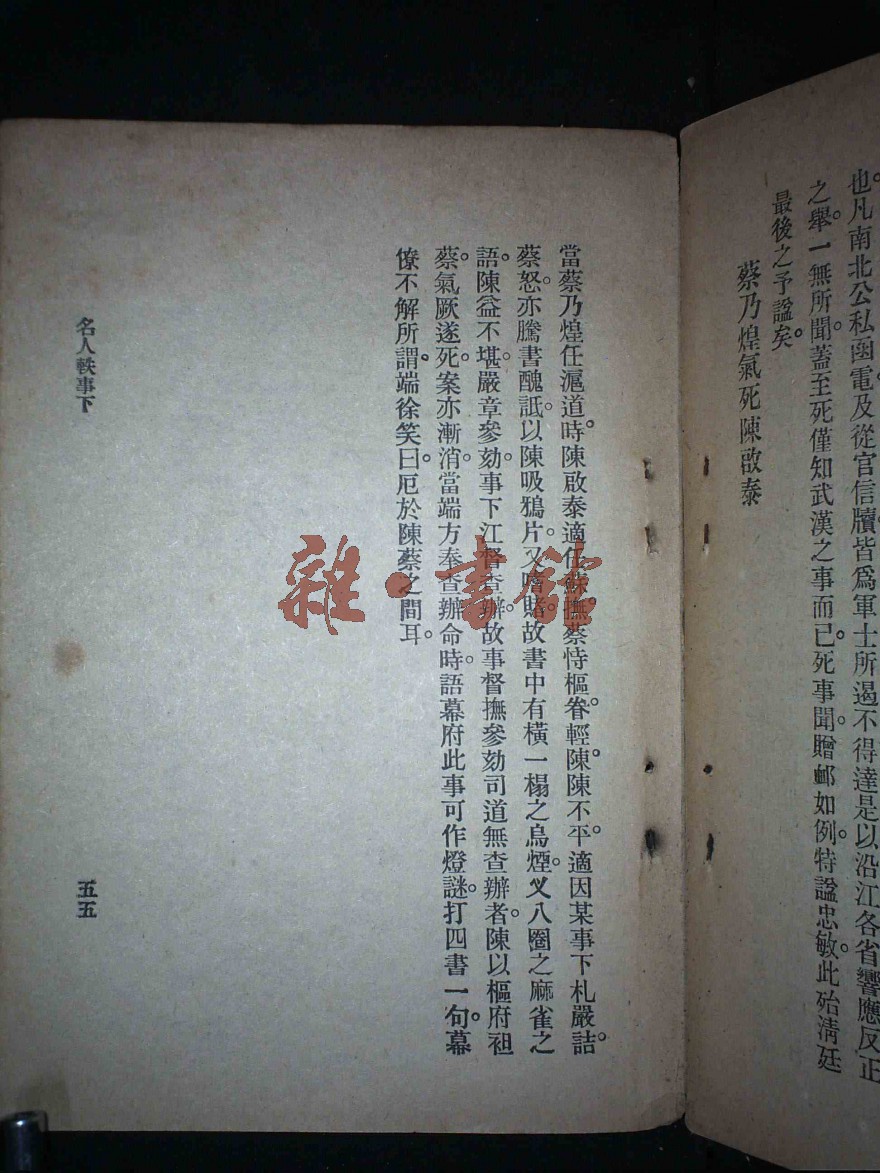 也。凡南北公私函電。及從官信牘。皆爲軍士所遏不得達。是以沿江各省響應反正
之舉。一無所聞。蓋至死僅知武漢之事而已。死事聞。贈卹如例。特諡忠敏。此殆淸廷
最後之予諡矣。
蔡乃煌氣死陳啟泰
當蔡乃煌任滬道時。陳啟泰適任蘇撫。蔡恃樞眷輕陳。陳不平。適因某事下札嚴詰。
蔡怒。亦騰書醜詆。以陳吸鴉片。又嗜賭。故書中有橫一榻之烏煙。叉八圈之麻雀之
語。陳益不堪。嚴章參劾。事下江督查辦。故事督撫參劾司道。無查辦者。陳以樞府袒
蔡。氣厥遂死。案亦漸消。當端方奉查辦命時。語幕府此事可作燈謎。打四書一句。幕
僚不解所謂。端徐笑曰。厄於陳蔡之間耳。
名人軼事下
五五
雜·書館